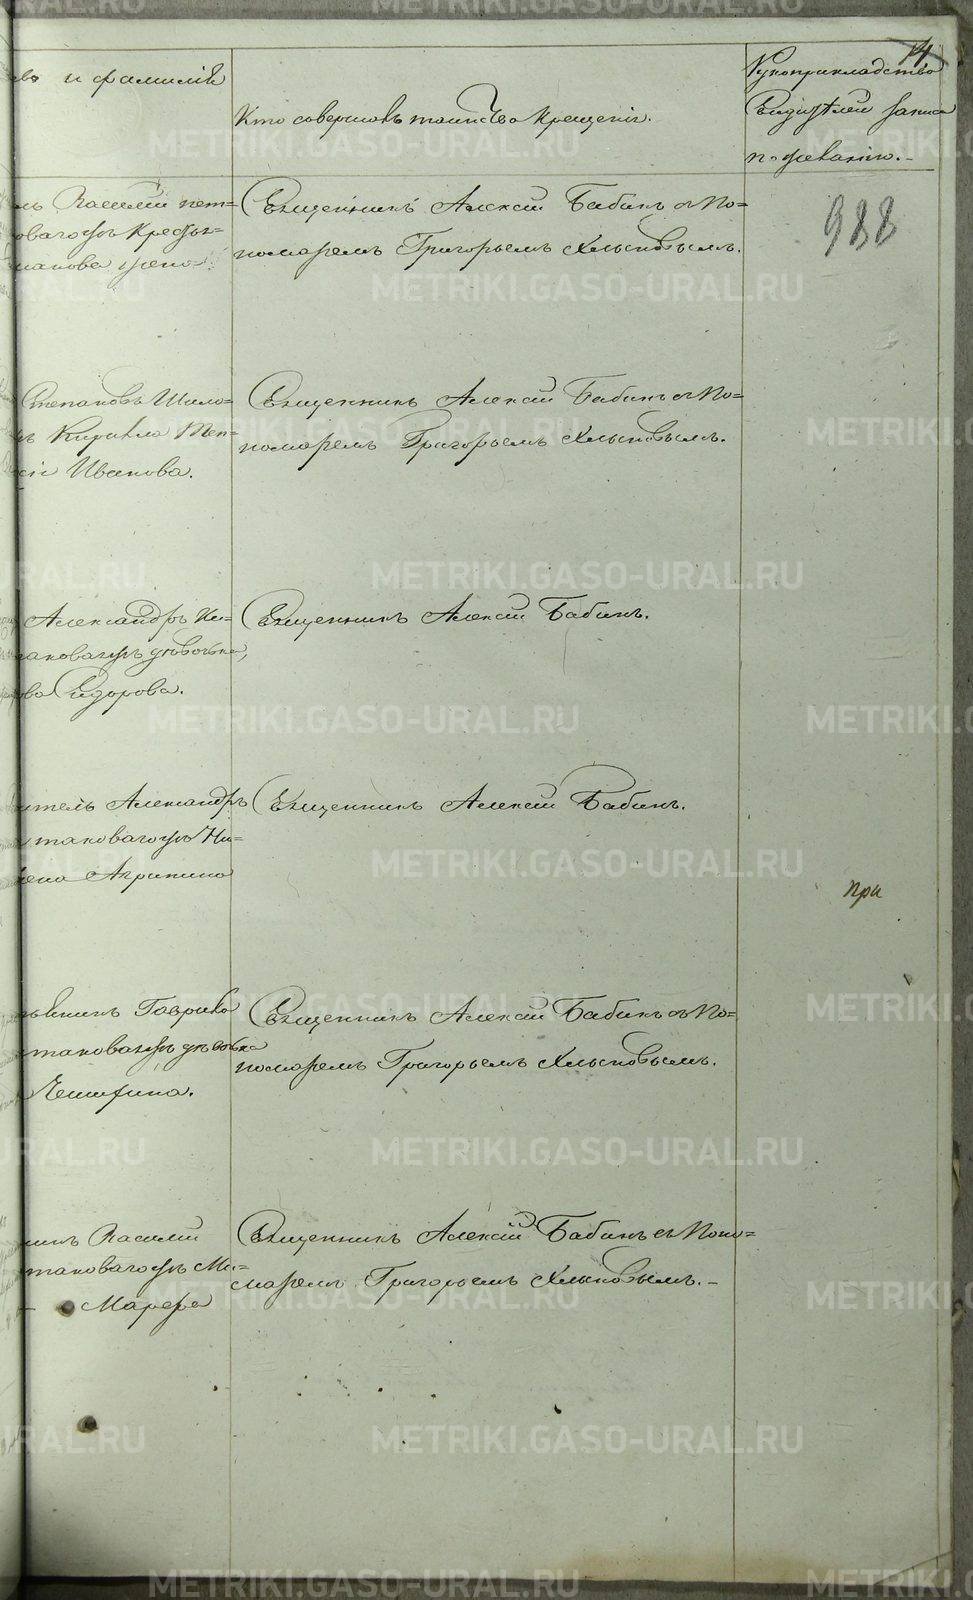 14
и фамиліи
Кто совершалъ таинство крещенія.
Рукоприкладство
свидѣтелей записи
по желанію.
988
Василій пет=
Священникъ Алексій Бабинъ съ По=
номаремъ Григорьемъ Хлыновымъ.
Степановъ Шило=
Кирилла Теп=
Иванова.
Священникъ Алексій Бабинъ съ По=
номаремъ Григорьемъ Хлыновымъ.
Александръ Ки=
таковагожъ дѣвочка,
Сидорова.
Священникъ Алексій Бабинъ.
итель Александръ
таковагожъ Ни=
Агрипина
Священникъ Алексій Бабинъ.
при
Гаврило
таковагожъ дѣвка
Священникъ Алексій Бабинъ съ По=
номаремъ Григорьемъ Хлыновымъ.
Василій
таковагожъ Ми=
Марѳа
Священникъ Алексій Бабинъ съ Поно=
маремъ Григорьемъ Хлыновымъ.
METRIKI.GASO-URAL.RU